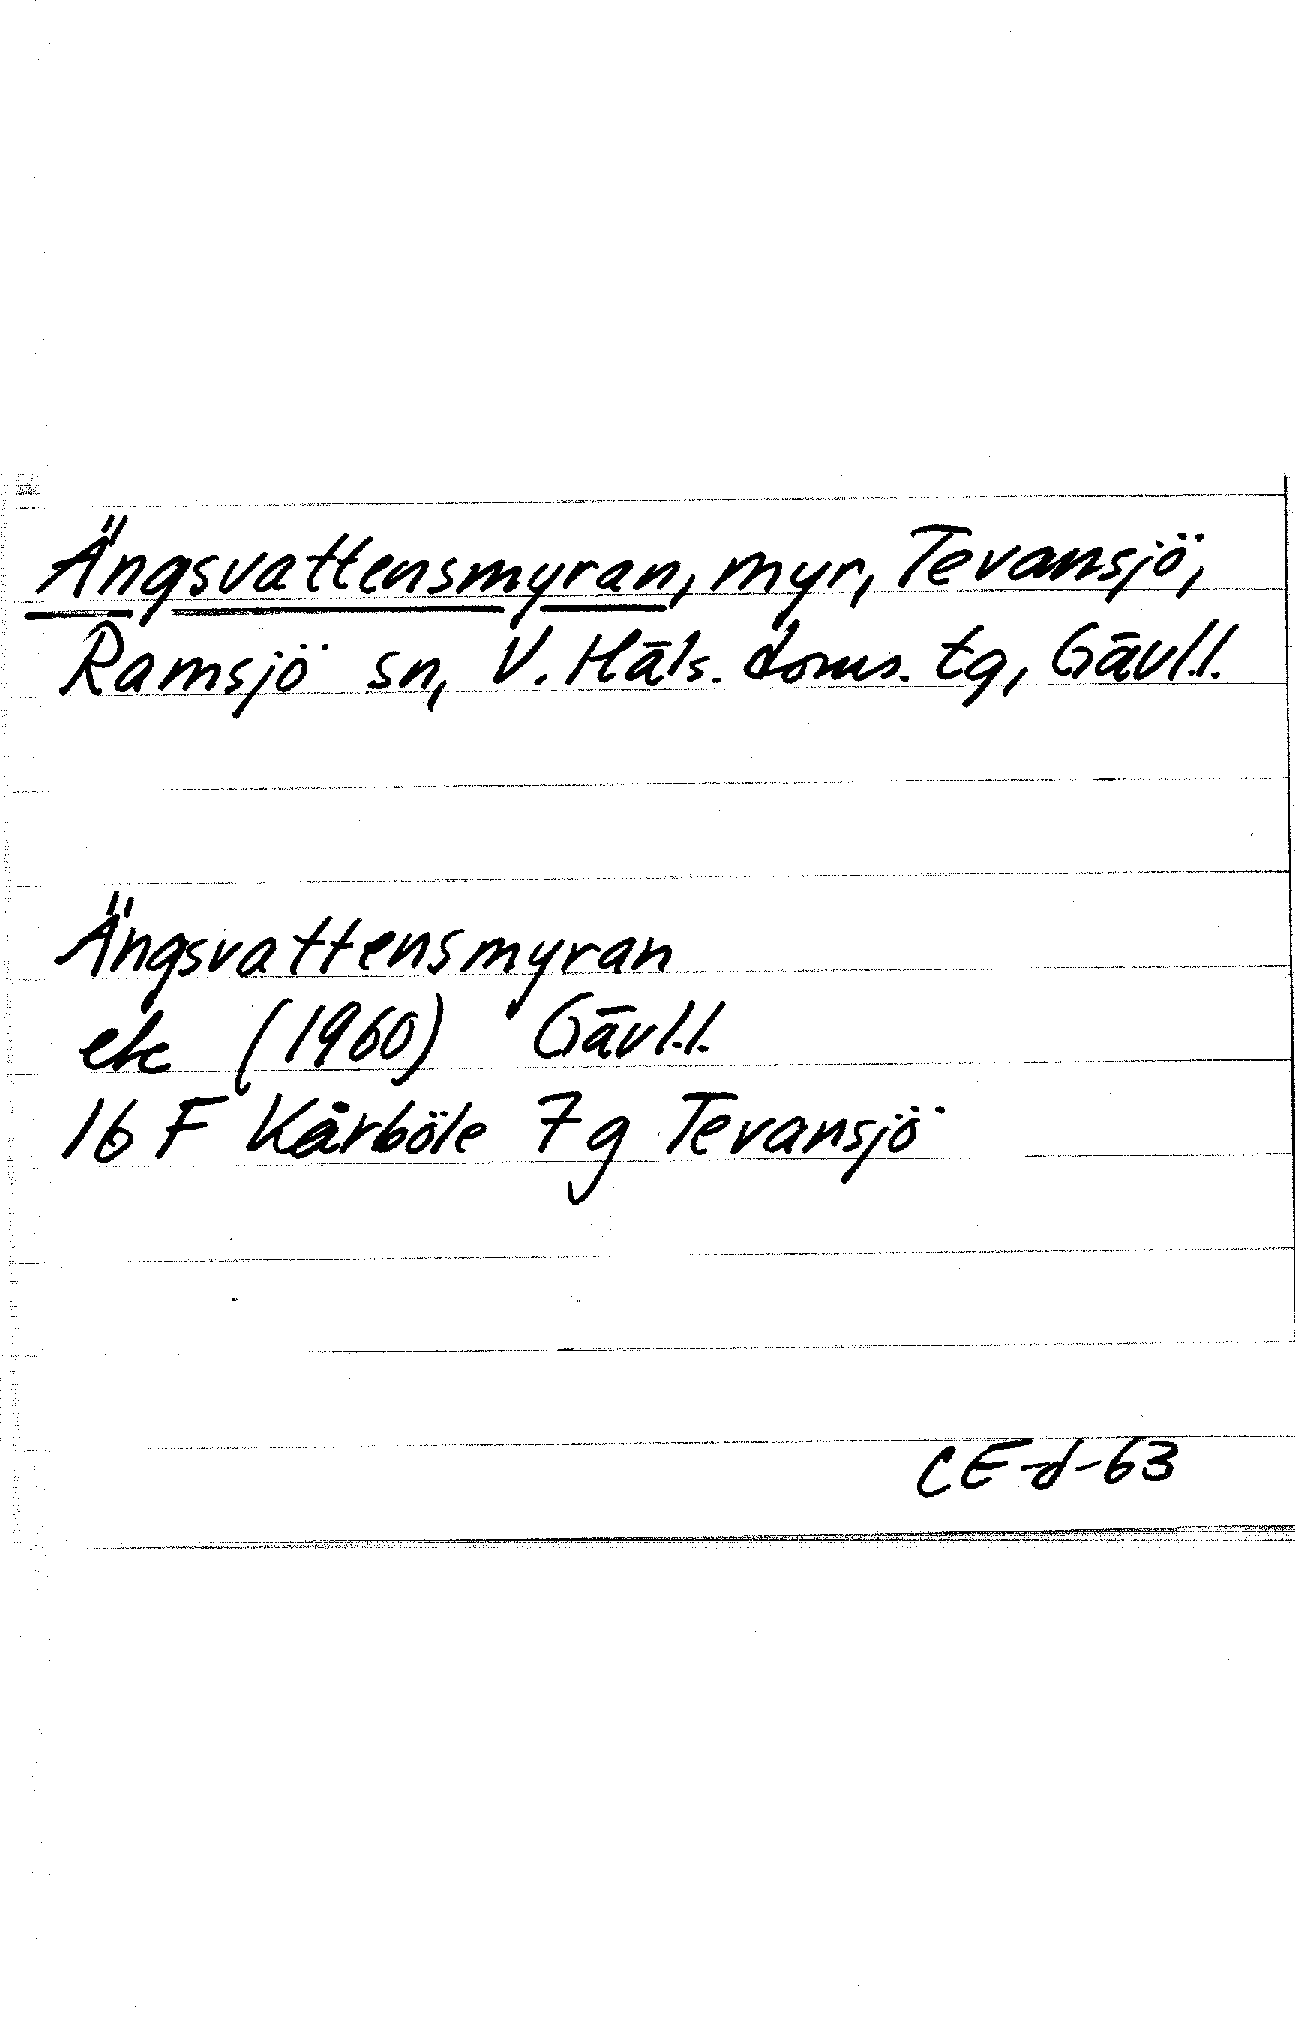 Ängsvattensmyran, myr, Tevansjö,
Ramsjö sn, V. Häls. doms. tg, Gävl.l.
Ängsvattensmyran
ek (1960) Gävl.l.
16 F Kårböle 7g Tevansjö
CE-d-63